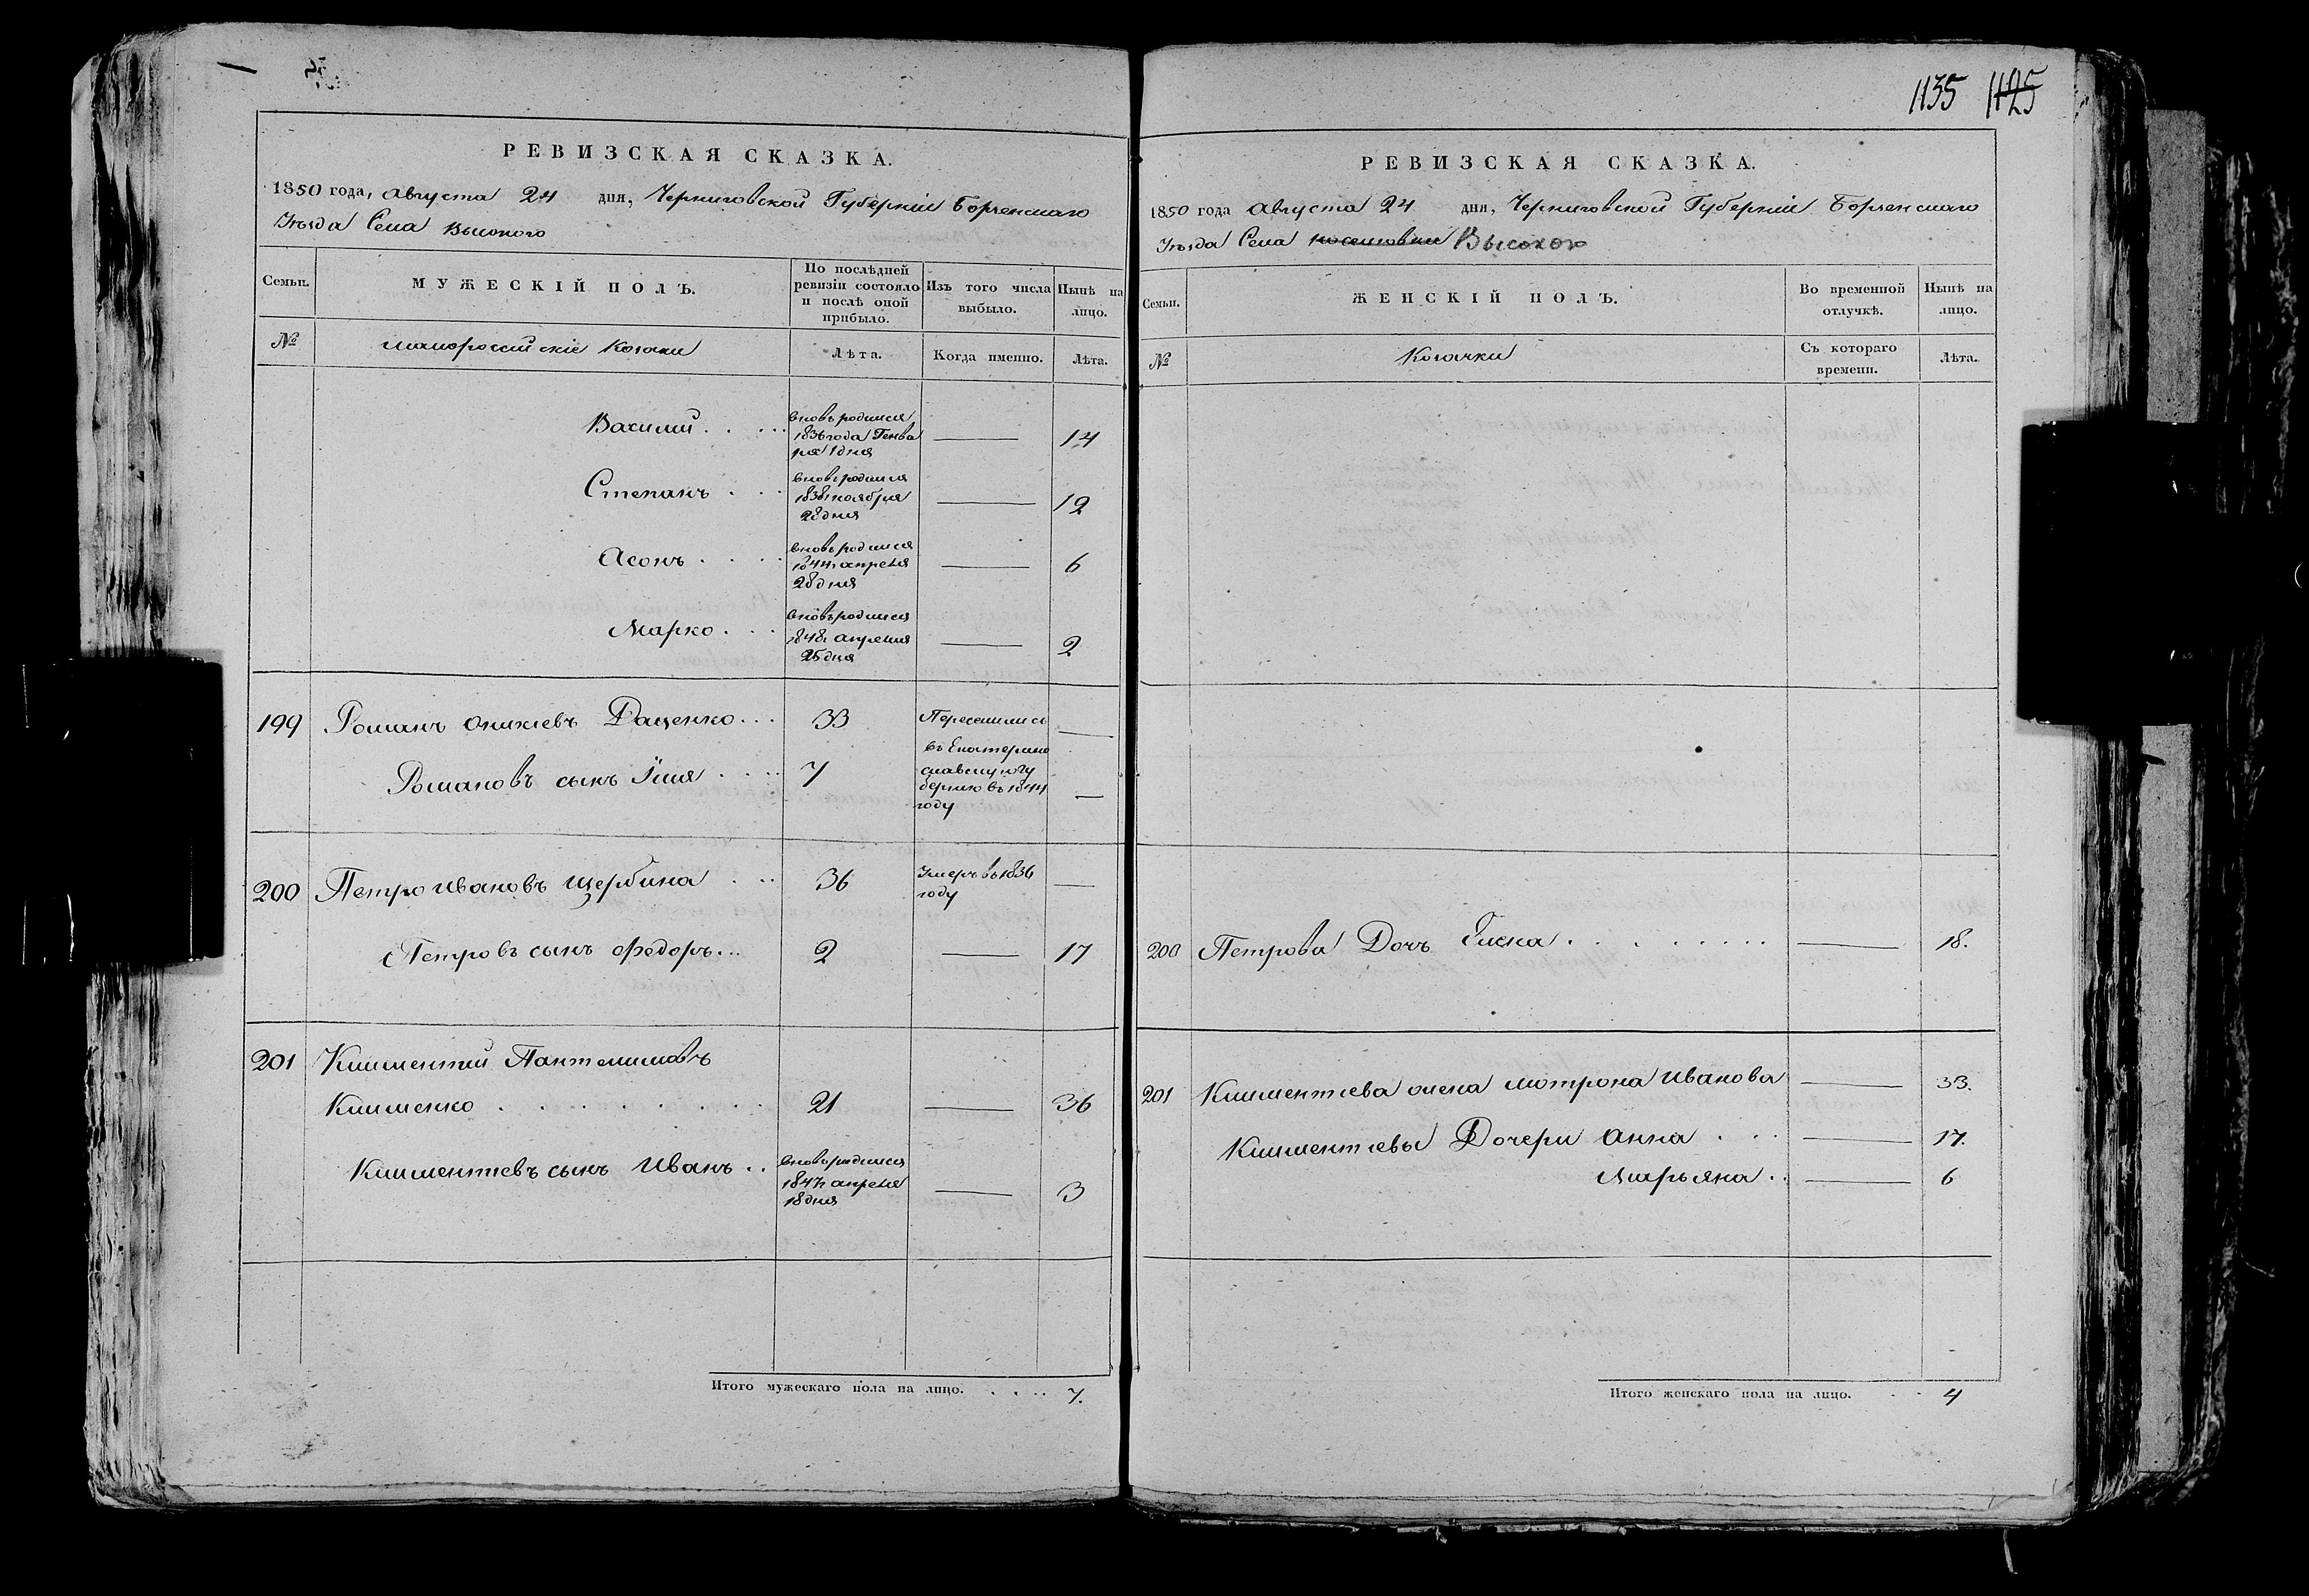 1135 1125
РЕВИЗСКАЯ СКАЗКА.
1850 года, августа 24 дня, Черниговской Губерніи Борзенскаго
Уѣзда Села Высокого
Семьи.
МУЖЕСКІЙ ПОЛЪ.
По послѣдней ревизіи состояло и послѣ оной прибыло.
Изъ того числа выбыло.
Нынѣ на лицо.
№
малороссійскіе Козаки
Лѣта.
Когда именно.
Лѣта.
Василий . . . . вновь родился 1836 года Генваря 1 дня — 14
Степанъ . . . вновь родился 1838 ноября 28 дня — 12
Асонъ . . . . вновь родился 1844 г апреля 28 дня — 6
Марко . . . вновь родился 1848 г апреля 25 дня — 2
199 Романъ Оникіевъ Даценко . . . 33 Переселились —
Романовъ сынъ Илія . . . . 7 въ Екатеринославскую губернию въ 1844 году —
200 Петро Ивановъ Щербина . . . 36 Умеръ въ 1836 году —
Петровъ сынъ Федоръ . . . 2 — 17
201 Климентий Пантелимовъ
Клименко . . . . . . . . . 21 — 36
Климентиевъ сынъ Иванъ . . вновь родился 1847 г апреля 18 дня — 3
Итого мужескаго пола на лицо. . . . . 7.
РЕВИЗСКАЯ СКАЗКА.
1850 года Августа 24 дня, Черниговской Губерніи Борзенскаго
Уѣзда Села Высокого
Семьи.
ЖЕНСКІЙ ПОЛЪ.
Во временной отлучкѣ.
Нынѣ на лицо.
№
Козачки
Съ котораго времени.
Лѣта.
200 Петрова Дочъ . . . . . . . . . — 18.
201 Климентиева жена Мотрона Иванова — 33.
Климентиевы Дочери Анна . . . — 17.
Марьяна . . — 6
Итого женскаго пола на лицо. . . 4